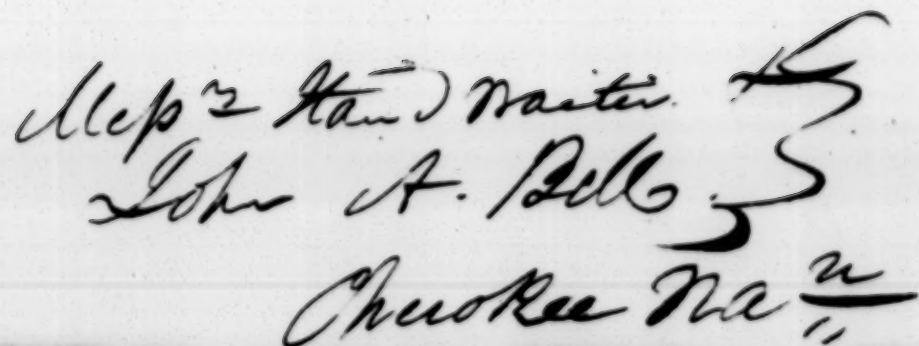 Messrs Stand Waitie &
John A. Bell
Cherokee Na n